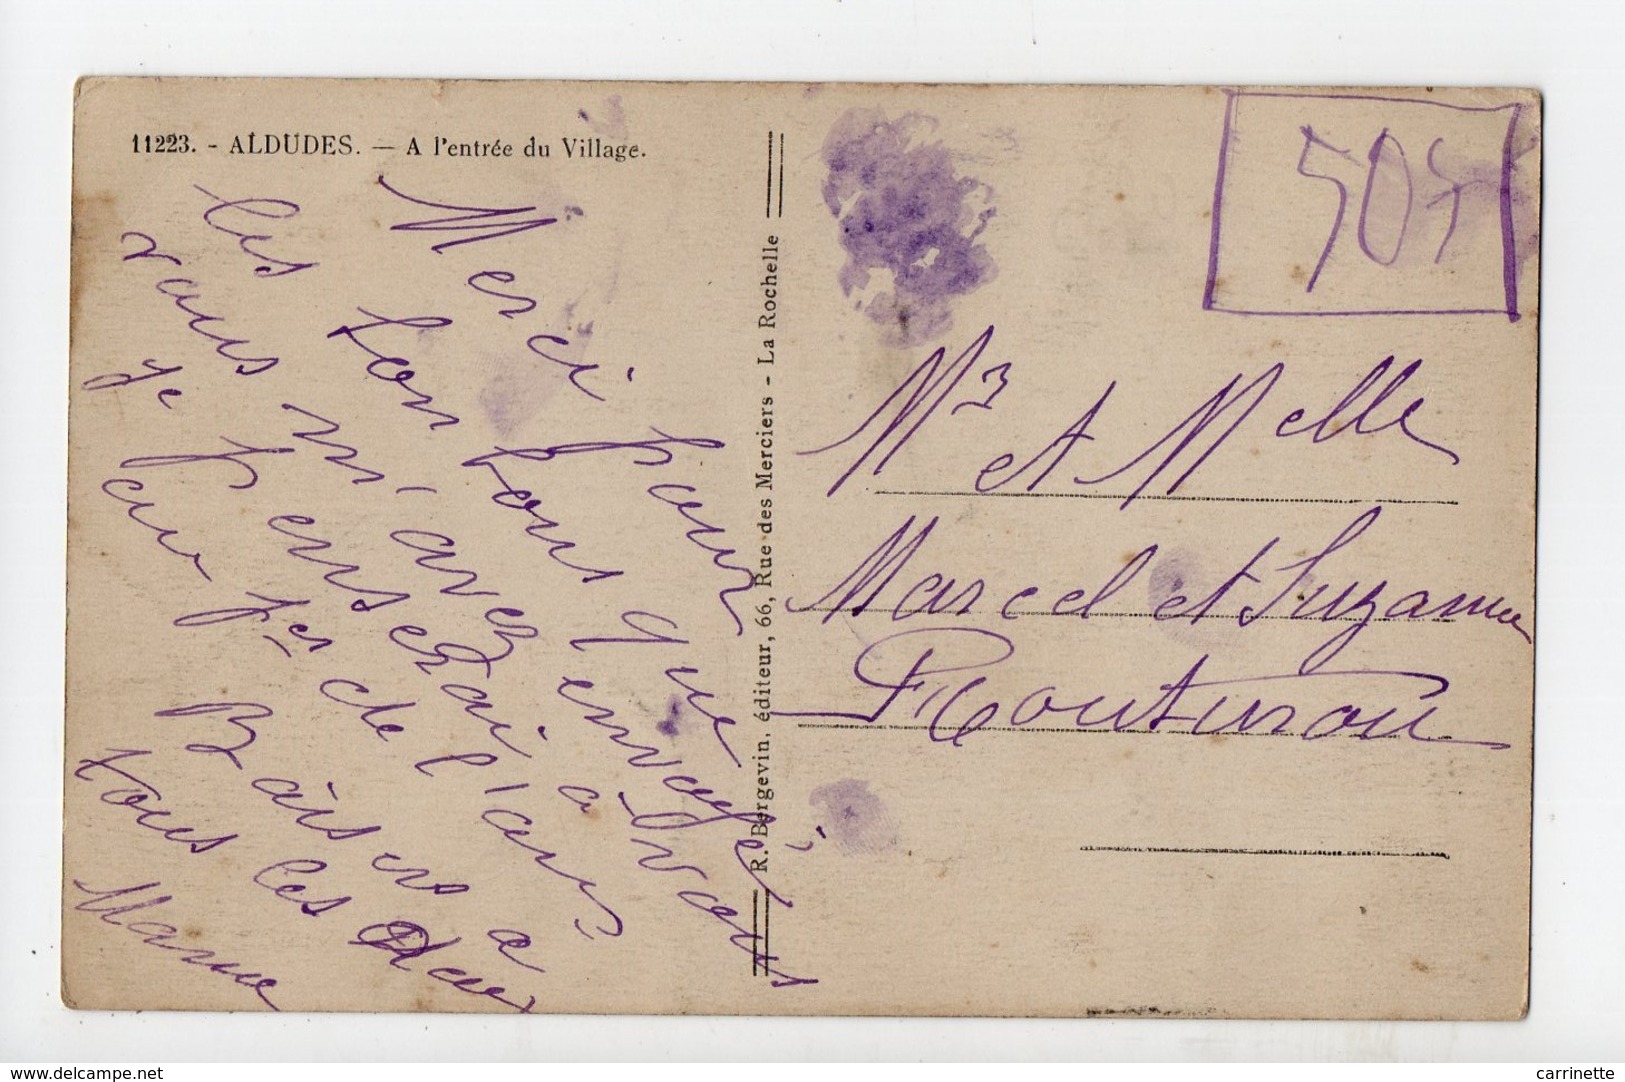 11223. - ALDUDES. — A l'entrée du Village.
Merci pour
les bon bons que
vous m'avez envoyés
je penserai à vous
au 1er de l'an
Baisers à
tous les deux
Mame
R. Bergevin, éditeur, 66, Rue des Merciers - La Rochelle
504
Mr et Melle
Marcel et Suzanne
delcampe.net
carrinette